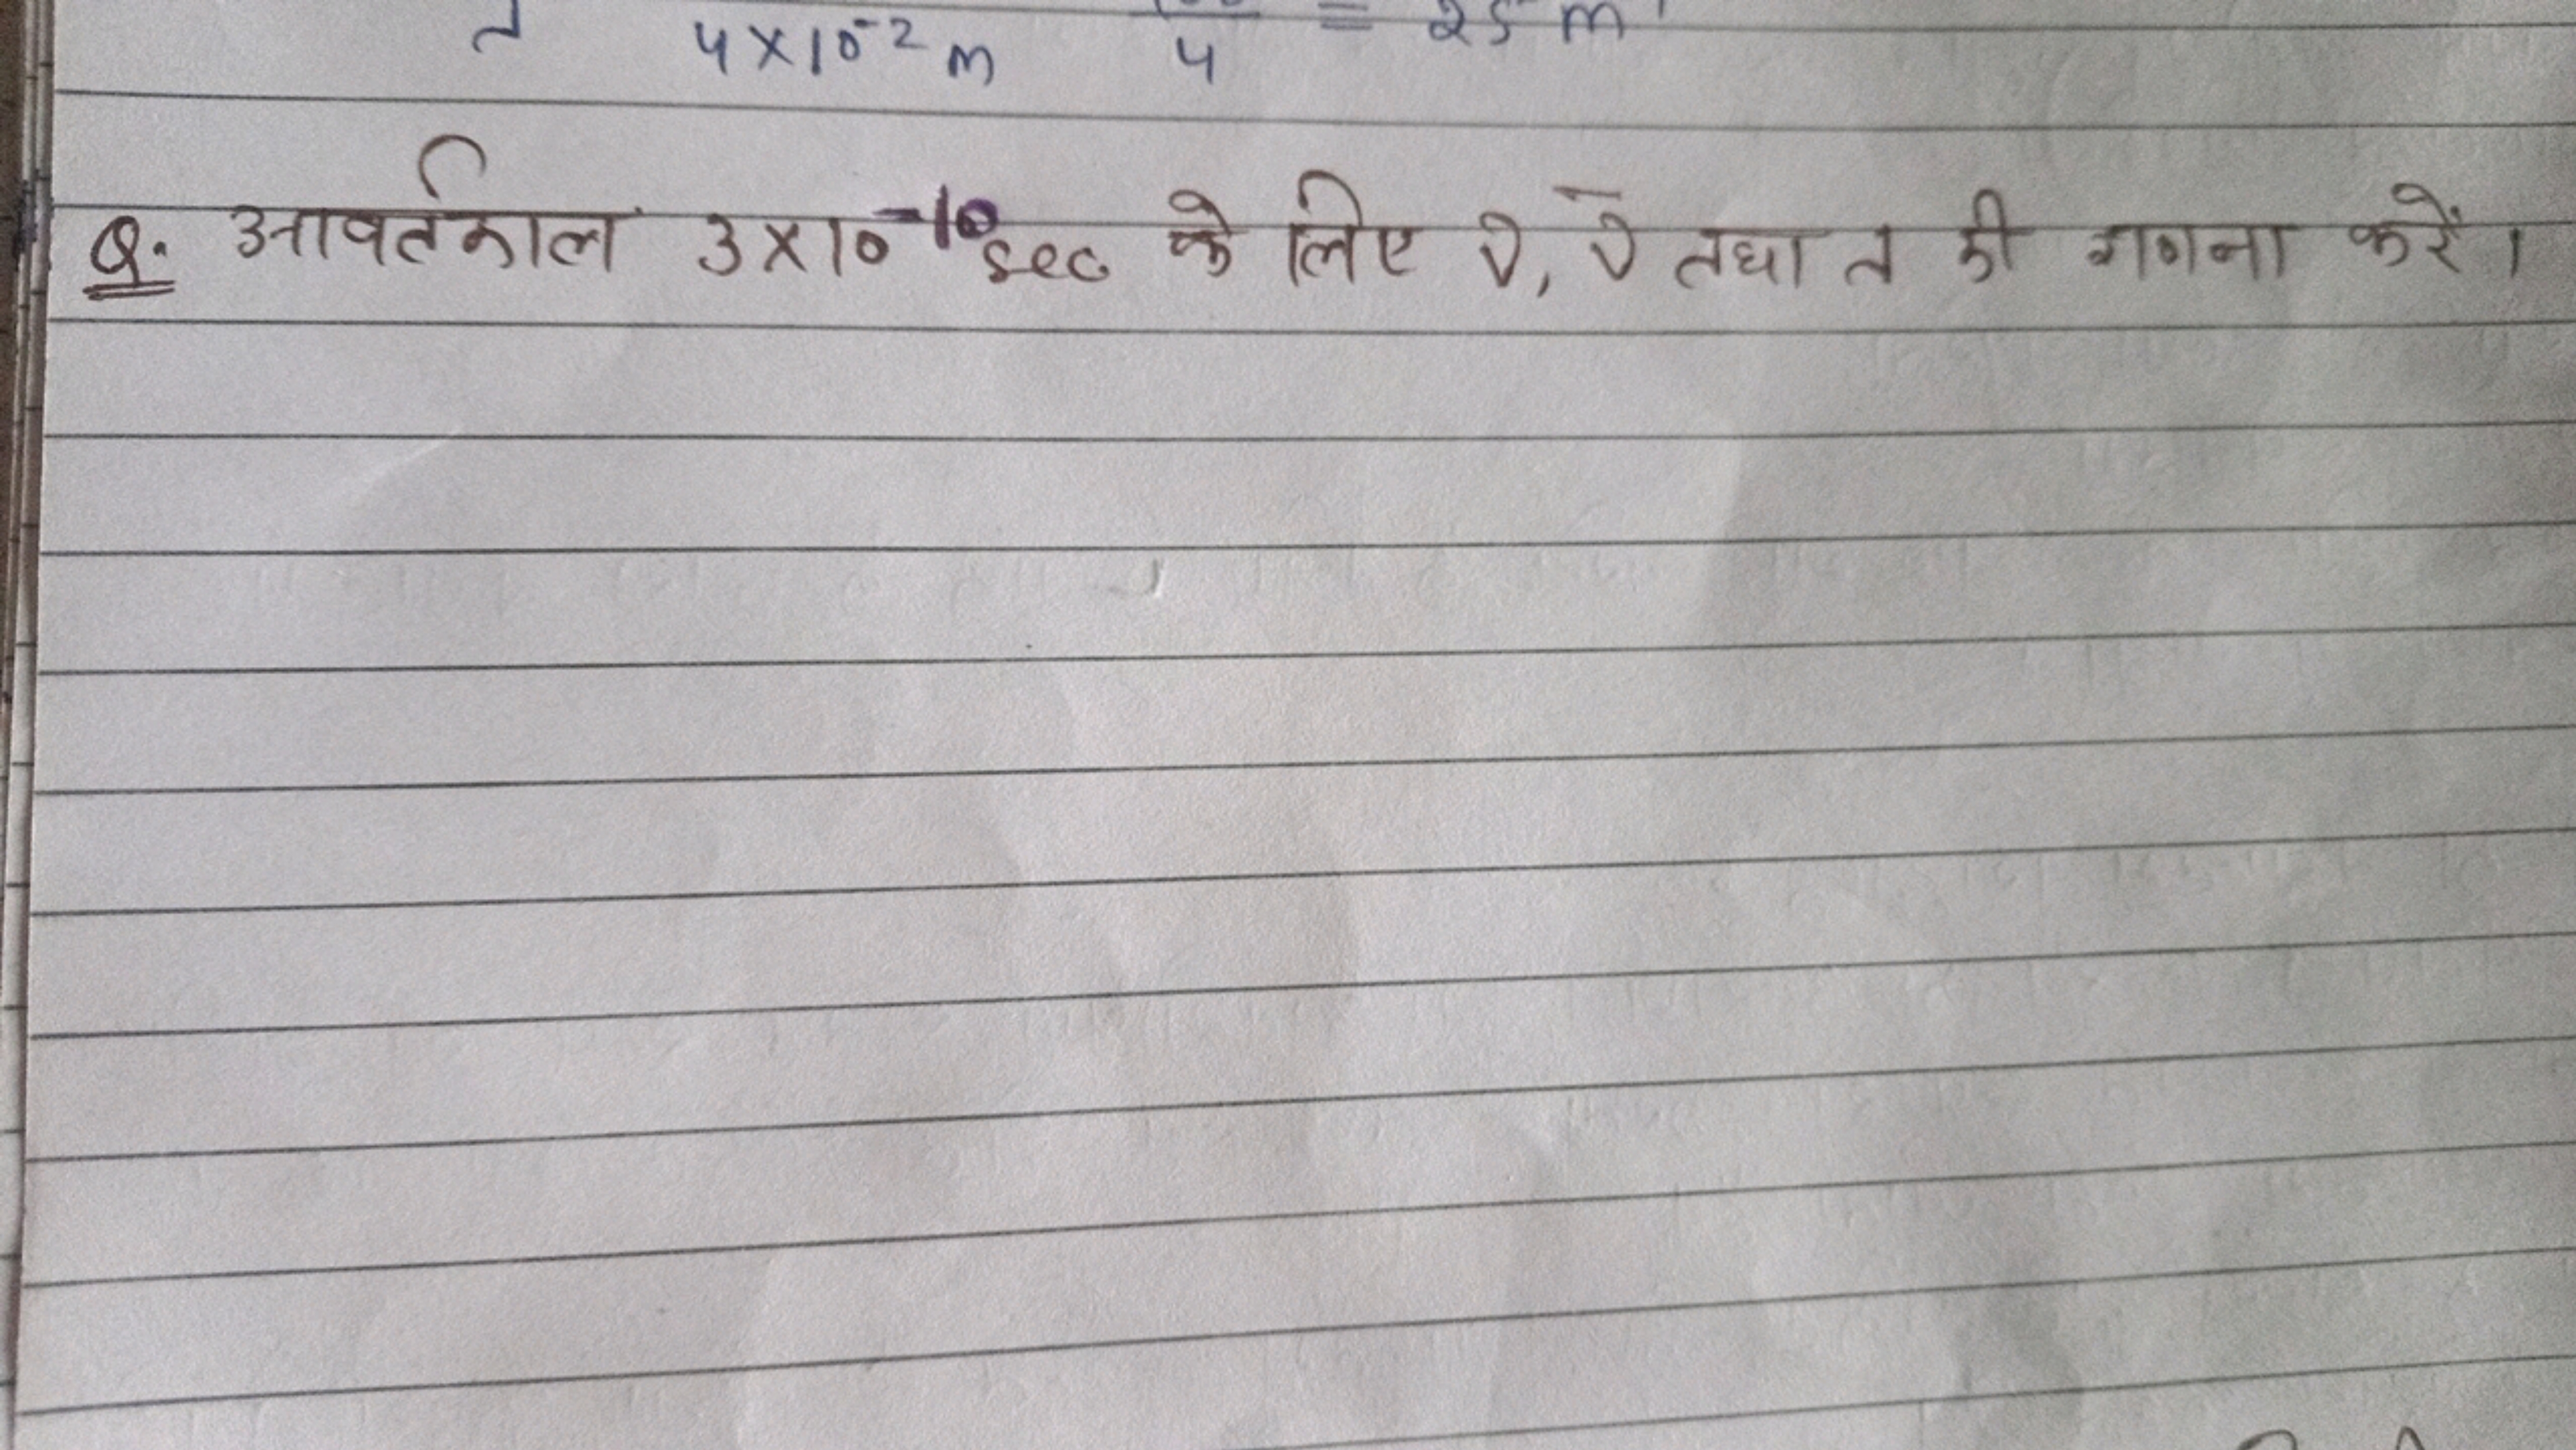 λ 4×10⁻² m 4 = 25 m⁻¹
Q. आवर्तकाल 3×10⁻¹⁰ sec के लिए ν, ν̄ तथा λ की गणना करें।